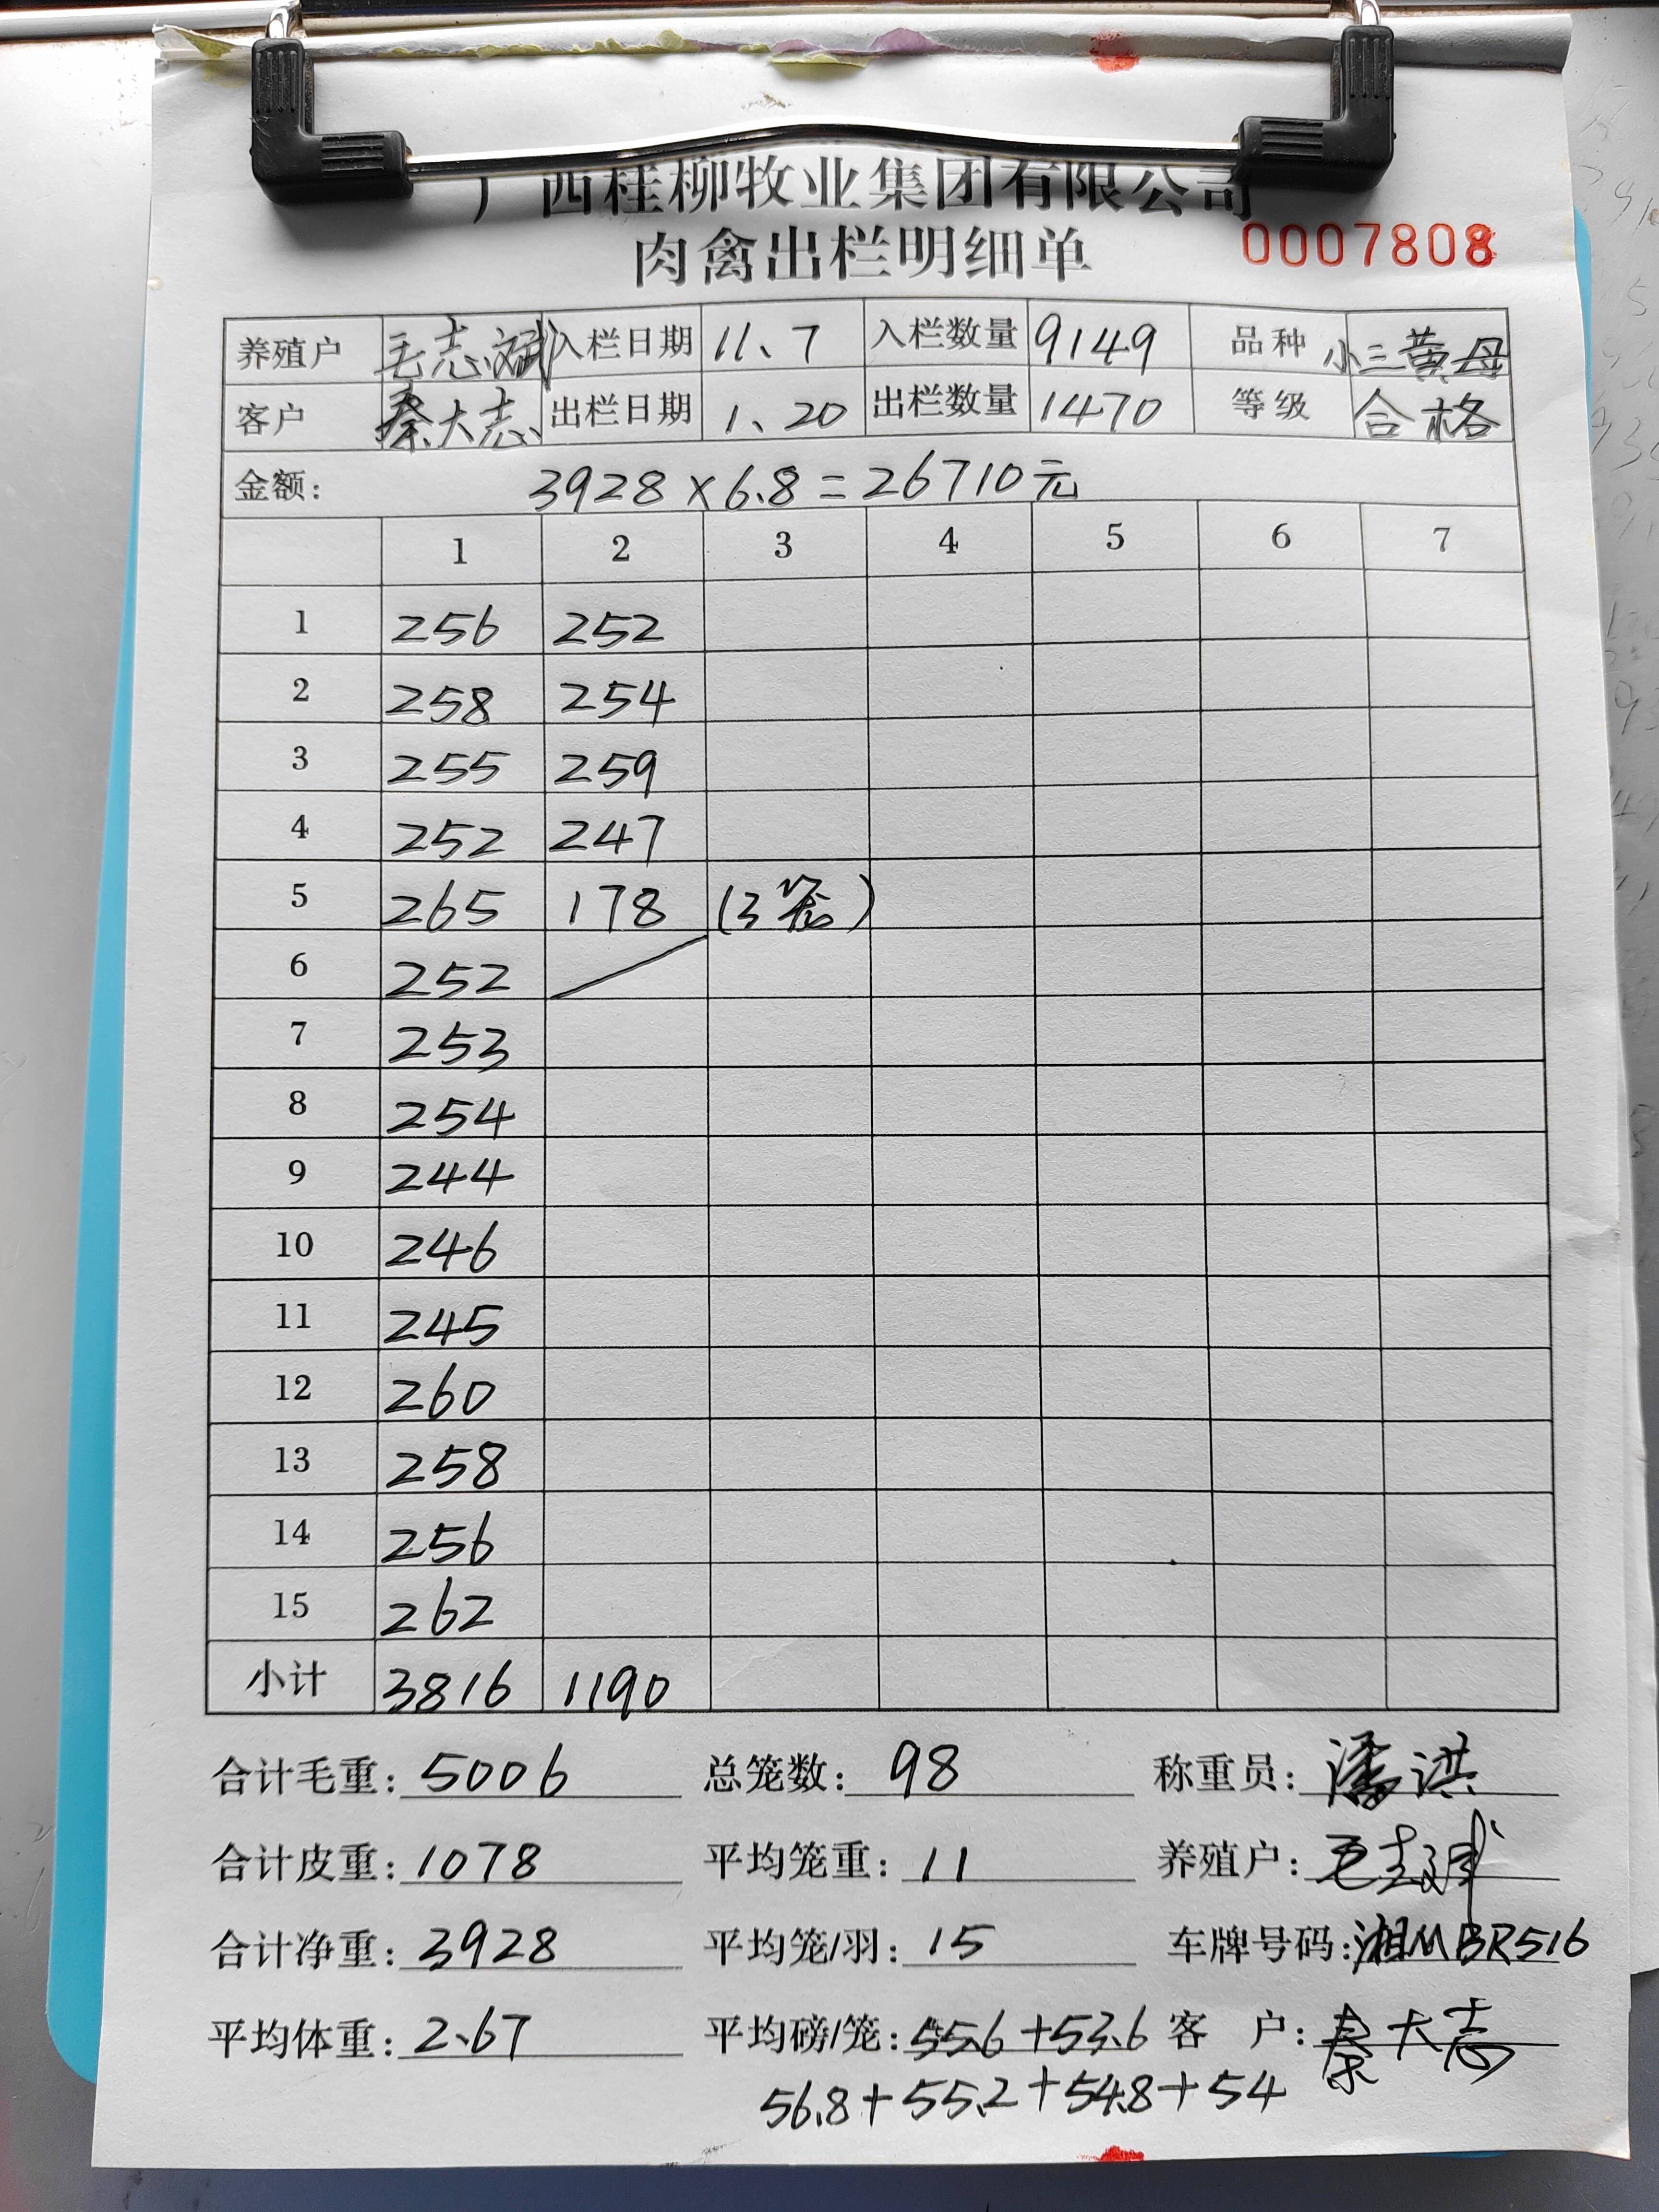 广西桂柳牧业集团有限公司
肉禽出栏明细单 0007808
养殖户 毛志斌 入栏日期 11、7 入栏数量 9149 品种 小三黄母
客户 秦大志 出栏日期 1、20 出栏数量 1470 等级 合格
金额: 3928×6.8=26710元
1 2 3 4 5 6 7
1 256 252
2 258 254
3 255 259
4 252 247
5 265 178 (3笼)
6 252
7 253
8 254
9 244
10 246
11 245
12 260
13 258
14 256
15 262
小计 3816 1190
合计毛重: 5006 总笼数: 98 称重员: 潘洪
合计皮重: 1078 平均笼重: 11 养殖户: 毛志斌
合计净重: 3928 平均笼/羽: 15 车牌号码: 湘MBR516
平均体重: 2.67 平均磅/笼: 55.6+53.6 客 户: 秦大志
56.8+55.2+54.8+54